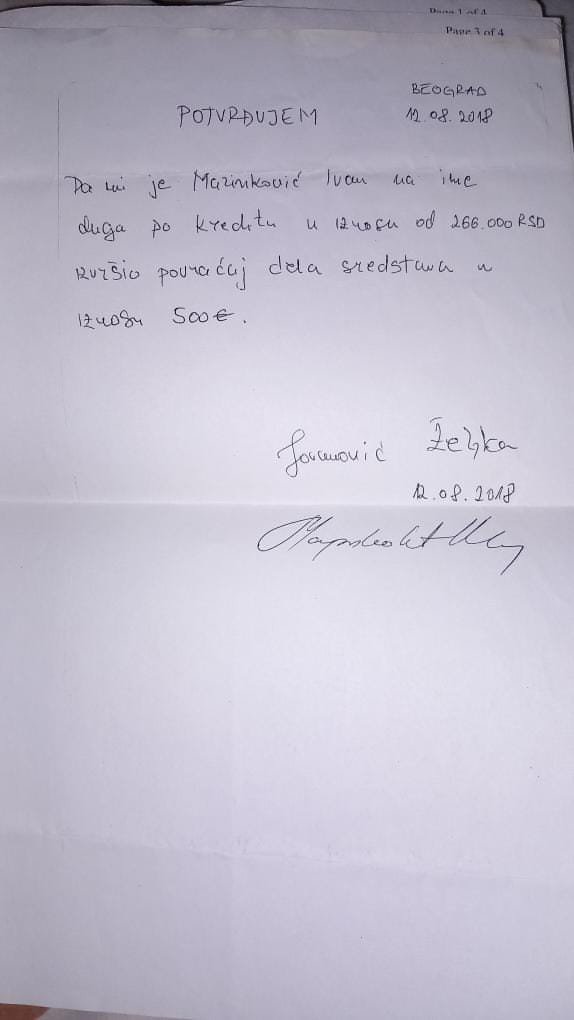 Page 1 of 4
Page 3 of 4
BEOGRAD
POTVRĐUJEM
12.08.2018
Da mi je Marinković Ivan na ime
duga po kreditu u iznosu od 266.000 RSD
izvršio povraćaj dela sredstava u
iznosu 500€.
Jovanović Željka
12.08.2018